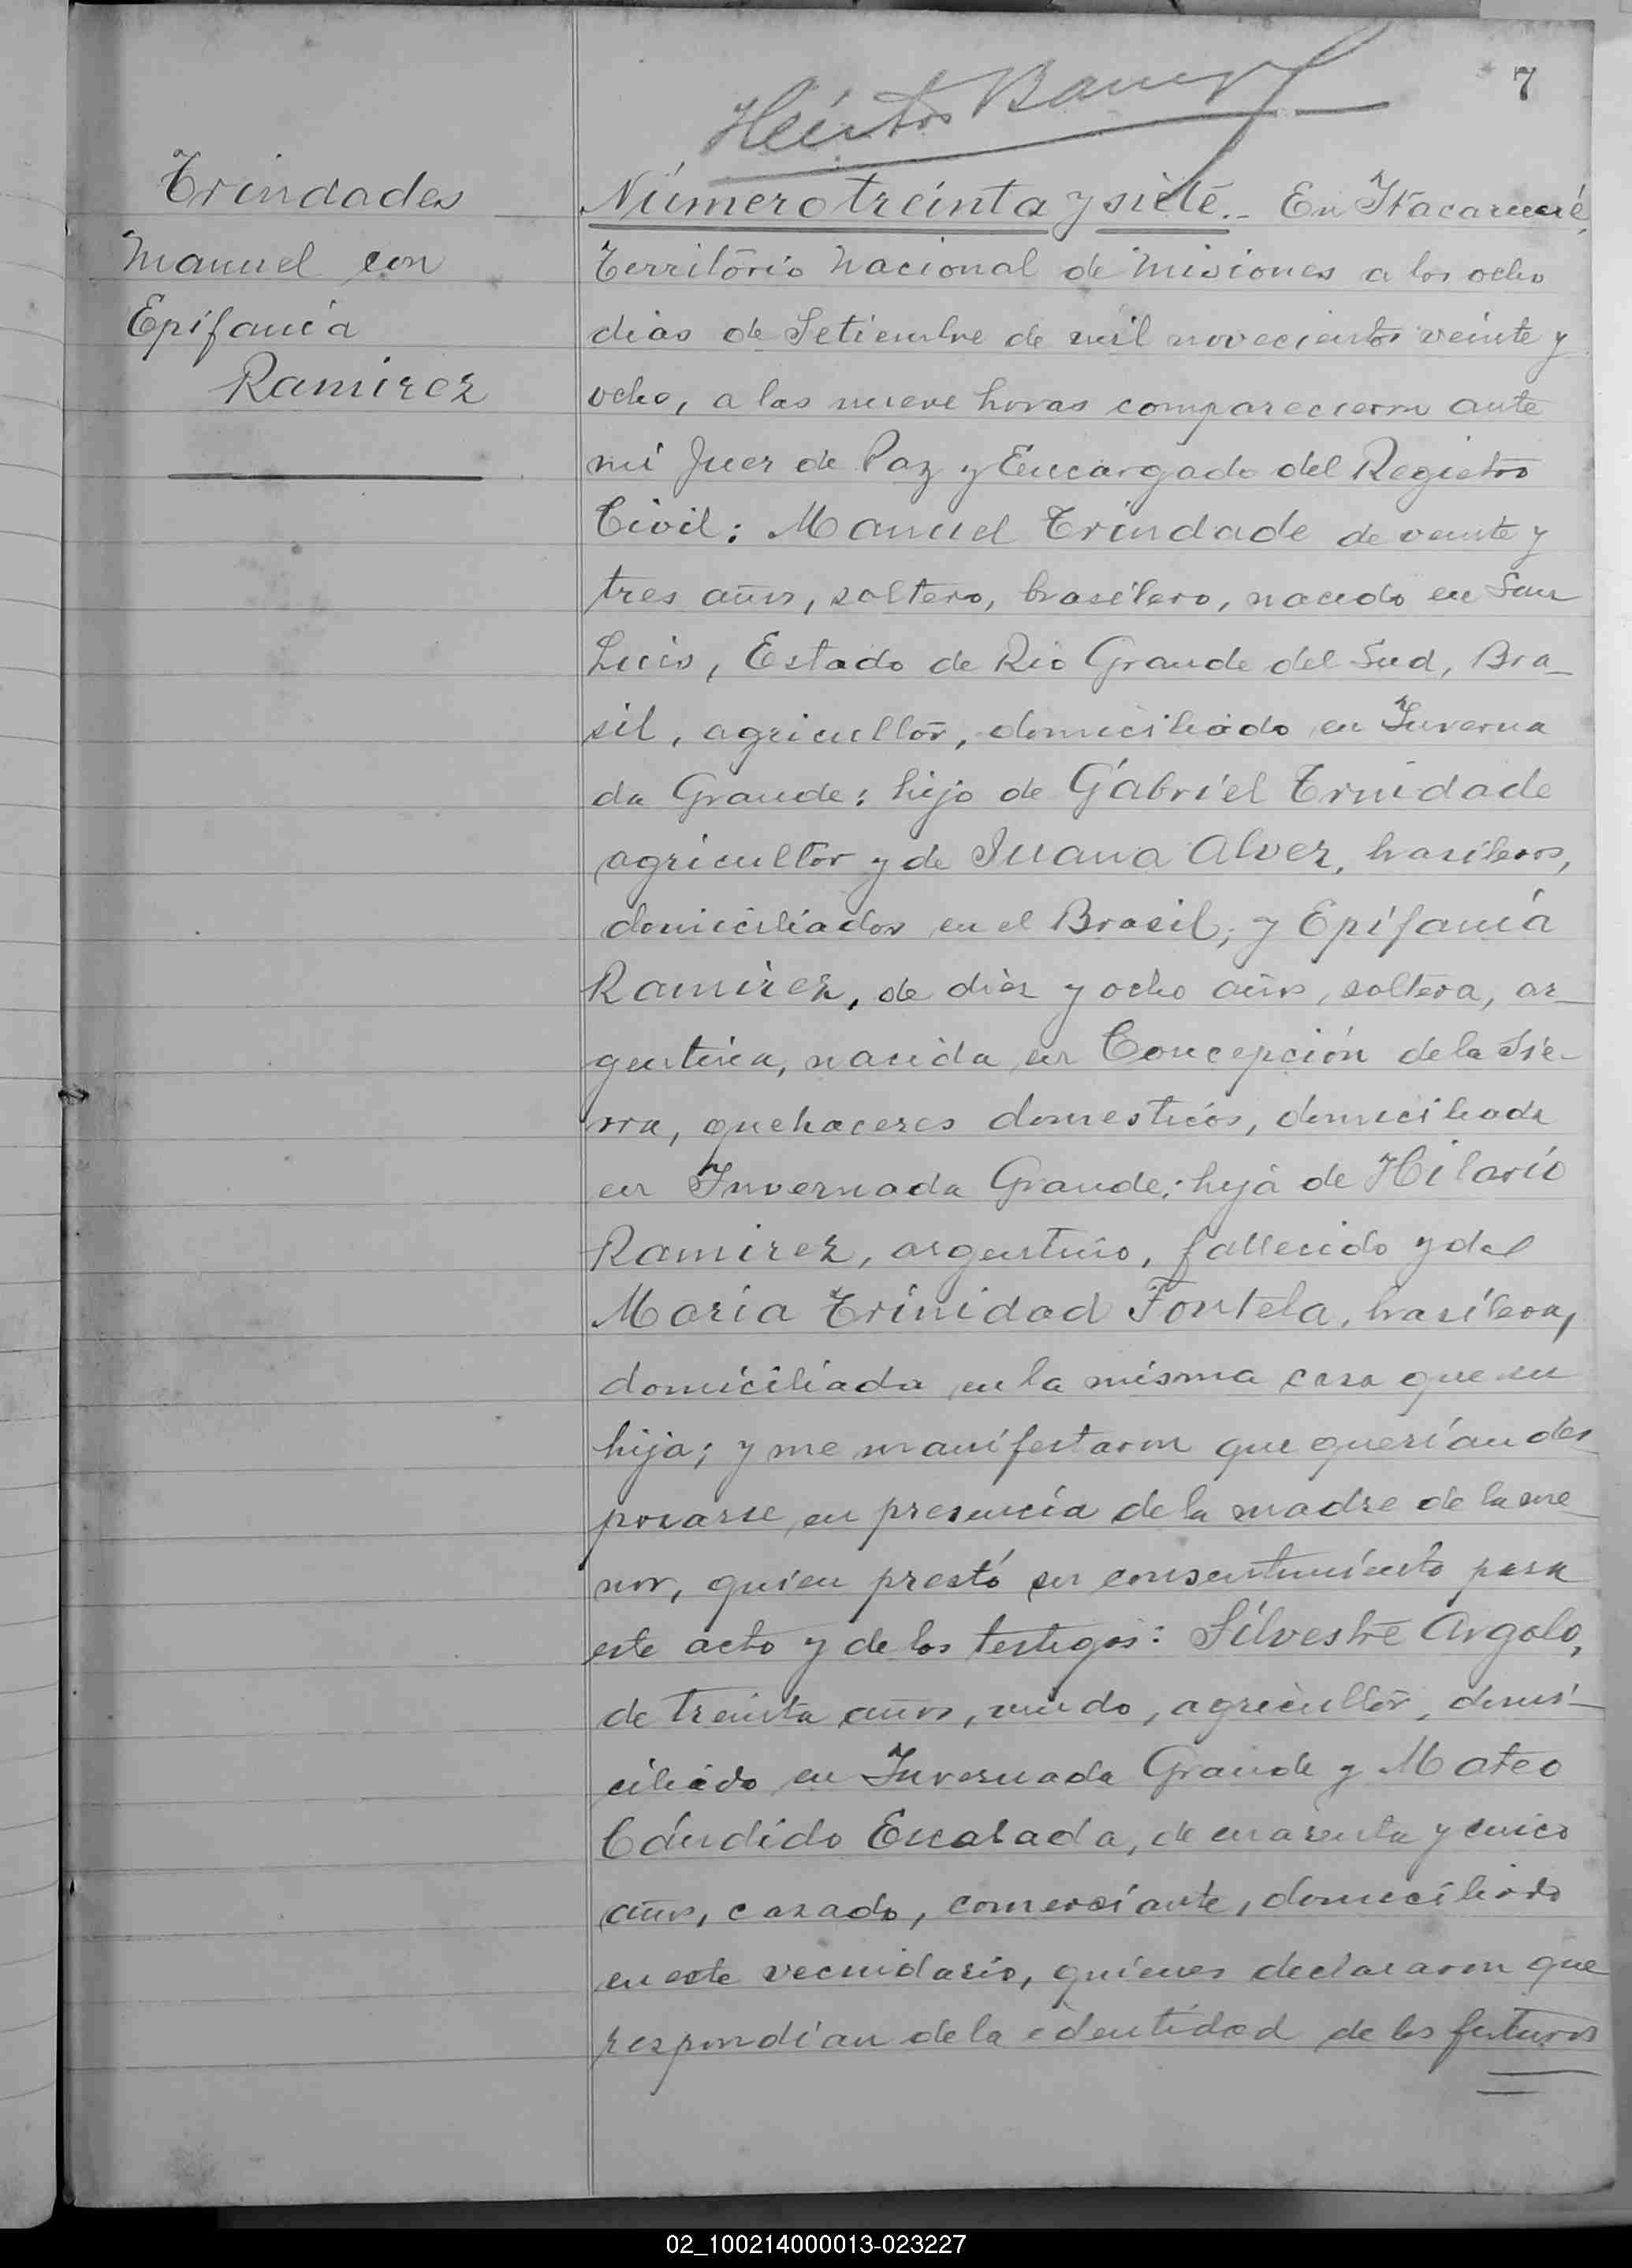 7
Héctor
Trindades
Manuel con
Epifanía
Ramirez
Número treinta y siete.- En Itacaruaré,
Território Nacional de Misiones a los ocho
dias de Setiembre de mil novecientos veinte y
ocho, a las nueve horas comparecieron ante
mi Juez de Paz y Encargado del Registro
Civil: Manuel Trindade de veinte y
tres años, soltero, brasilero, nacido en San
Luis, Estado de Rio Grande del Sud, Bra-
sil, agricultor, domiciliado en Inverna
da Grande: hijo de Gabriel Trindade
agricultor y de Juana Alvez, brasileros,
domiciliados en el Brasil; y Epifanía
Ramirez, de diez y ocho años, soltera, ar-
gentina, nacida en Concepción de la Sie-
rra, quehaceres domesticos, domiciliada
en Invernada Grande; hija de Hilario
Ramirez, argentino, fallecido y de
María Trinidad Fontela, brasilera,
domiciliada en la misma casa que su
hija; y me manifestaron que querían des-
posarse en presencia de la madre de la me-
nor, quien prestó su consentimiento para
este acto y de los testigos: Silvestre Argolo,
de treinta años, viudo, agricultor, domi-
ciliado en Invernada Grande y Mateo
Cándido Escalada, de cuarenta y cinco
años, casado, comerciante, domiciliado
en este vecindario, quienes declararon que
respondían de la identidad de los futuros
02_100214000013-023227